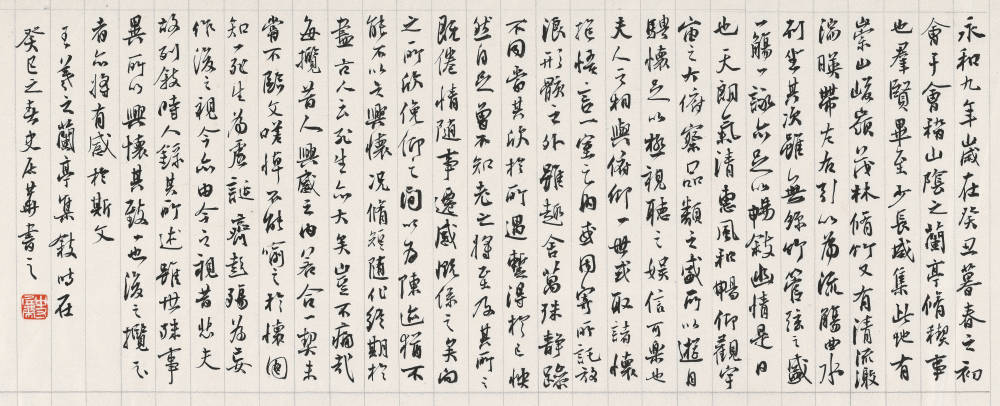 永和九年歲在癸丑暮春之初
會于會稽山陰之蘭亭脩稧事
也羣賢畢至少長咸集此地有
崇山峻嶺茂林脩竹又有清流激
湍暎帶左右引以為流觴曲水
列坐其次雖無絲竹管弦之盛
一觴一詠亦足以暢敘幽情是日
也天朗氣清惠風和暢仰觀宇
宙之大俯察品類之盛所以遊目
騁懷足以極視聽之娛信可樂也
夫人之相與俯仰一世或取諸懷
抱悟言一室之內或因寄所託放
浪形骸之外雖趣舍萬殊靜躁
不同當其欣於所遇暫得於己怏
然自足曾不知老之將至及其所之
既倦情隨事遷感慨係之矣向
之所欣俛仰之間以為陳迹猶不
能不以之興懷況脩短隨化終期於
盡古人云死生亦大矣豈不痛哉
每攬昔人興感之由若合一契未
嘗不臨文嗟悼不能喻之於懷固
知一死生為虛誕齊彭殤為妄
作後之視今亦由今之視昔悲夫
故列敘時人錄其所述雖世殊事
異所以興懷其致一也後之攬
者亦將有感於斯文
王羲之蘭亭集敘時在
癸巳之春史華書之